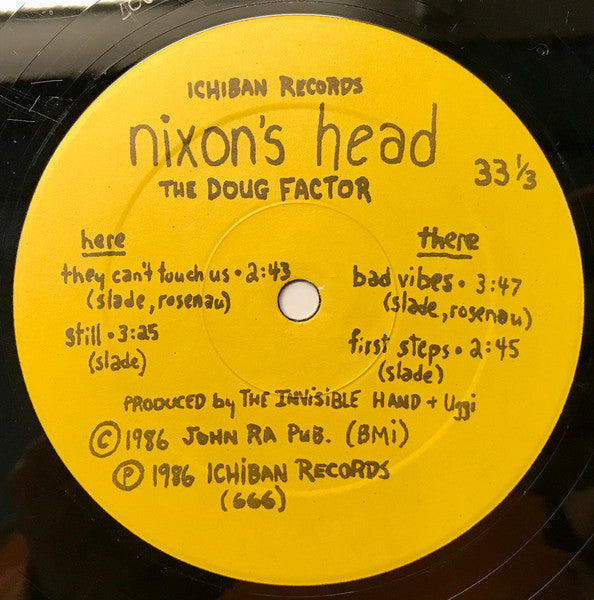 ICHIBAN RECORDS
nixon's head
33 1/3
THE DOUG FACTOR
here
they can't touch us • 2:43
(slade, rosenau)
still • 3:25
(slade)
there
bad vibes • 3:47
(slade, rosenau)
first steps • 2:45
(slade)
PRODUCED by THE INViSiBLE HAND + Uggi
© 1986 JOHN RA PUB. (BMi)
℗ 1986 ICHIBAN RECORDS
(666)